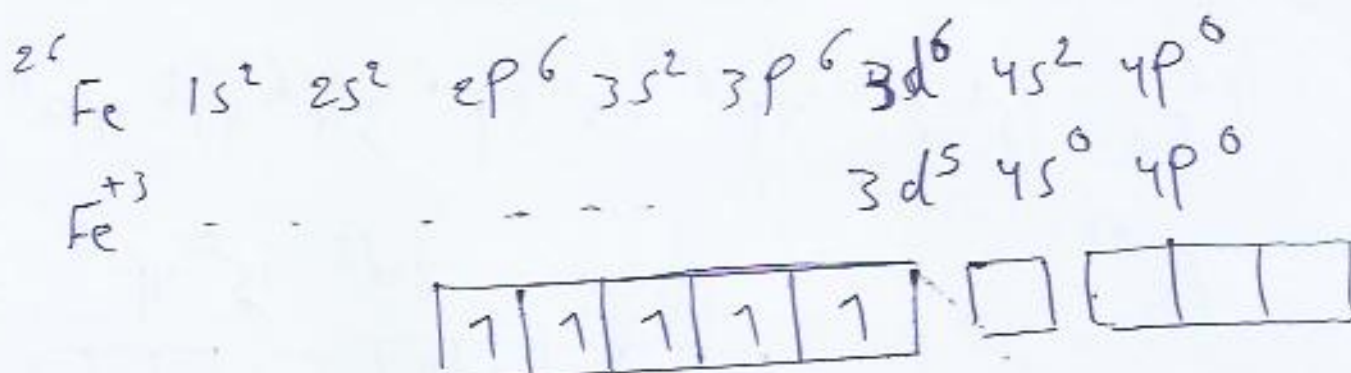 26Fe 1s² 2s² 2p⁶ 3s² 3p⁶ 3d⁶ 4s² 4p⁰
Fe⁺³ - - - - - - 3d⁵ 4s⁰ 4p⁰
1 1 1 1 1